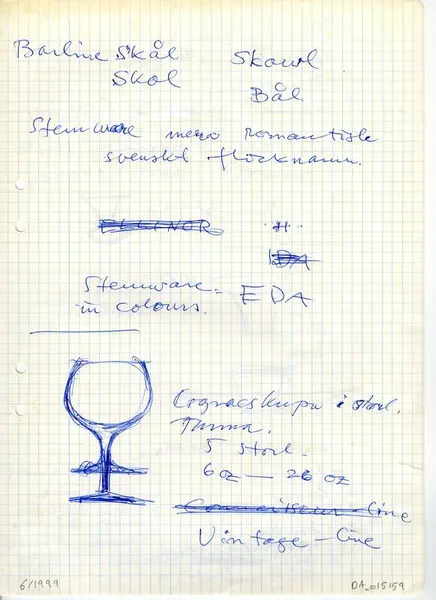 Barline Skål Skowl
Skol Bål
Stemware mera romantiskt
svenskt flicknamn.
ELLINOR H
IDA
Stemware =
in colours. EDA
Cognacskupa i storl.
Tunna.
5 storl.
6 oz — 26 oz
Connoisseur-line
Vintage-line
6/1999 DA_015159